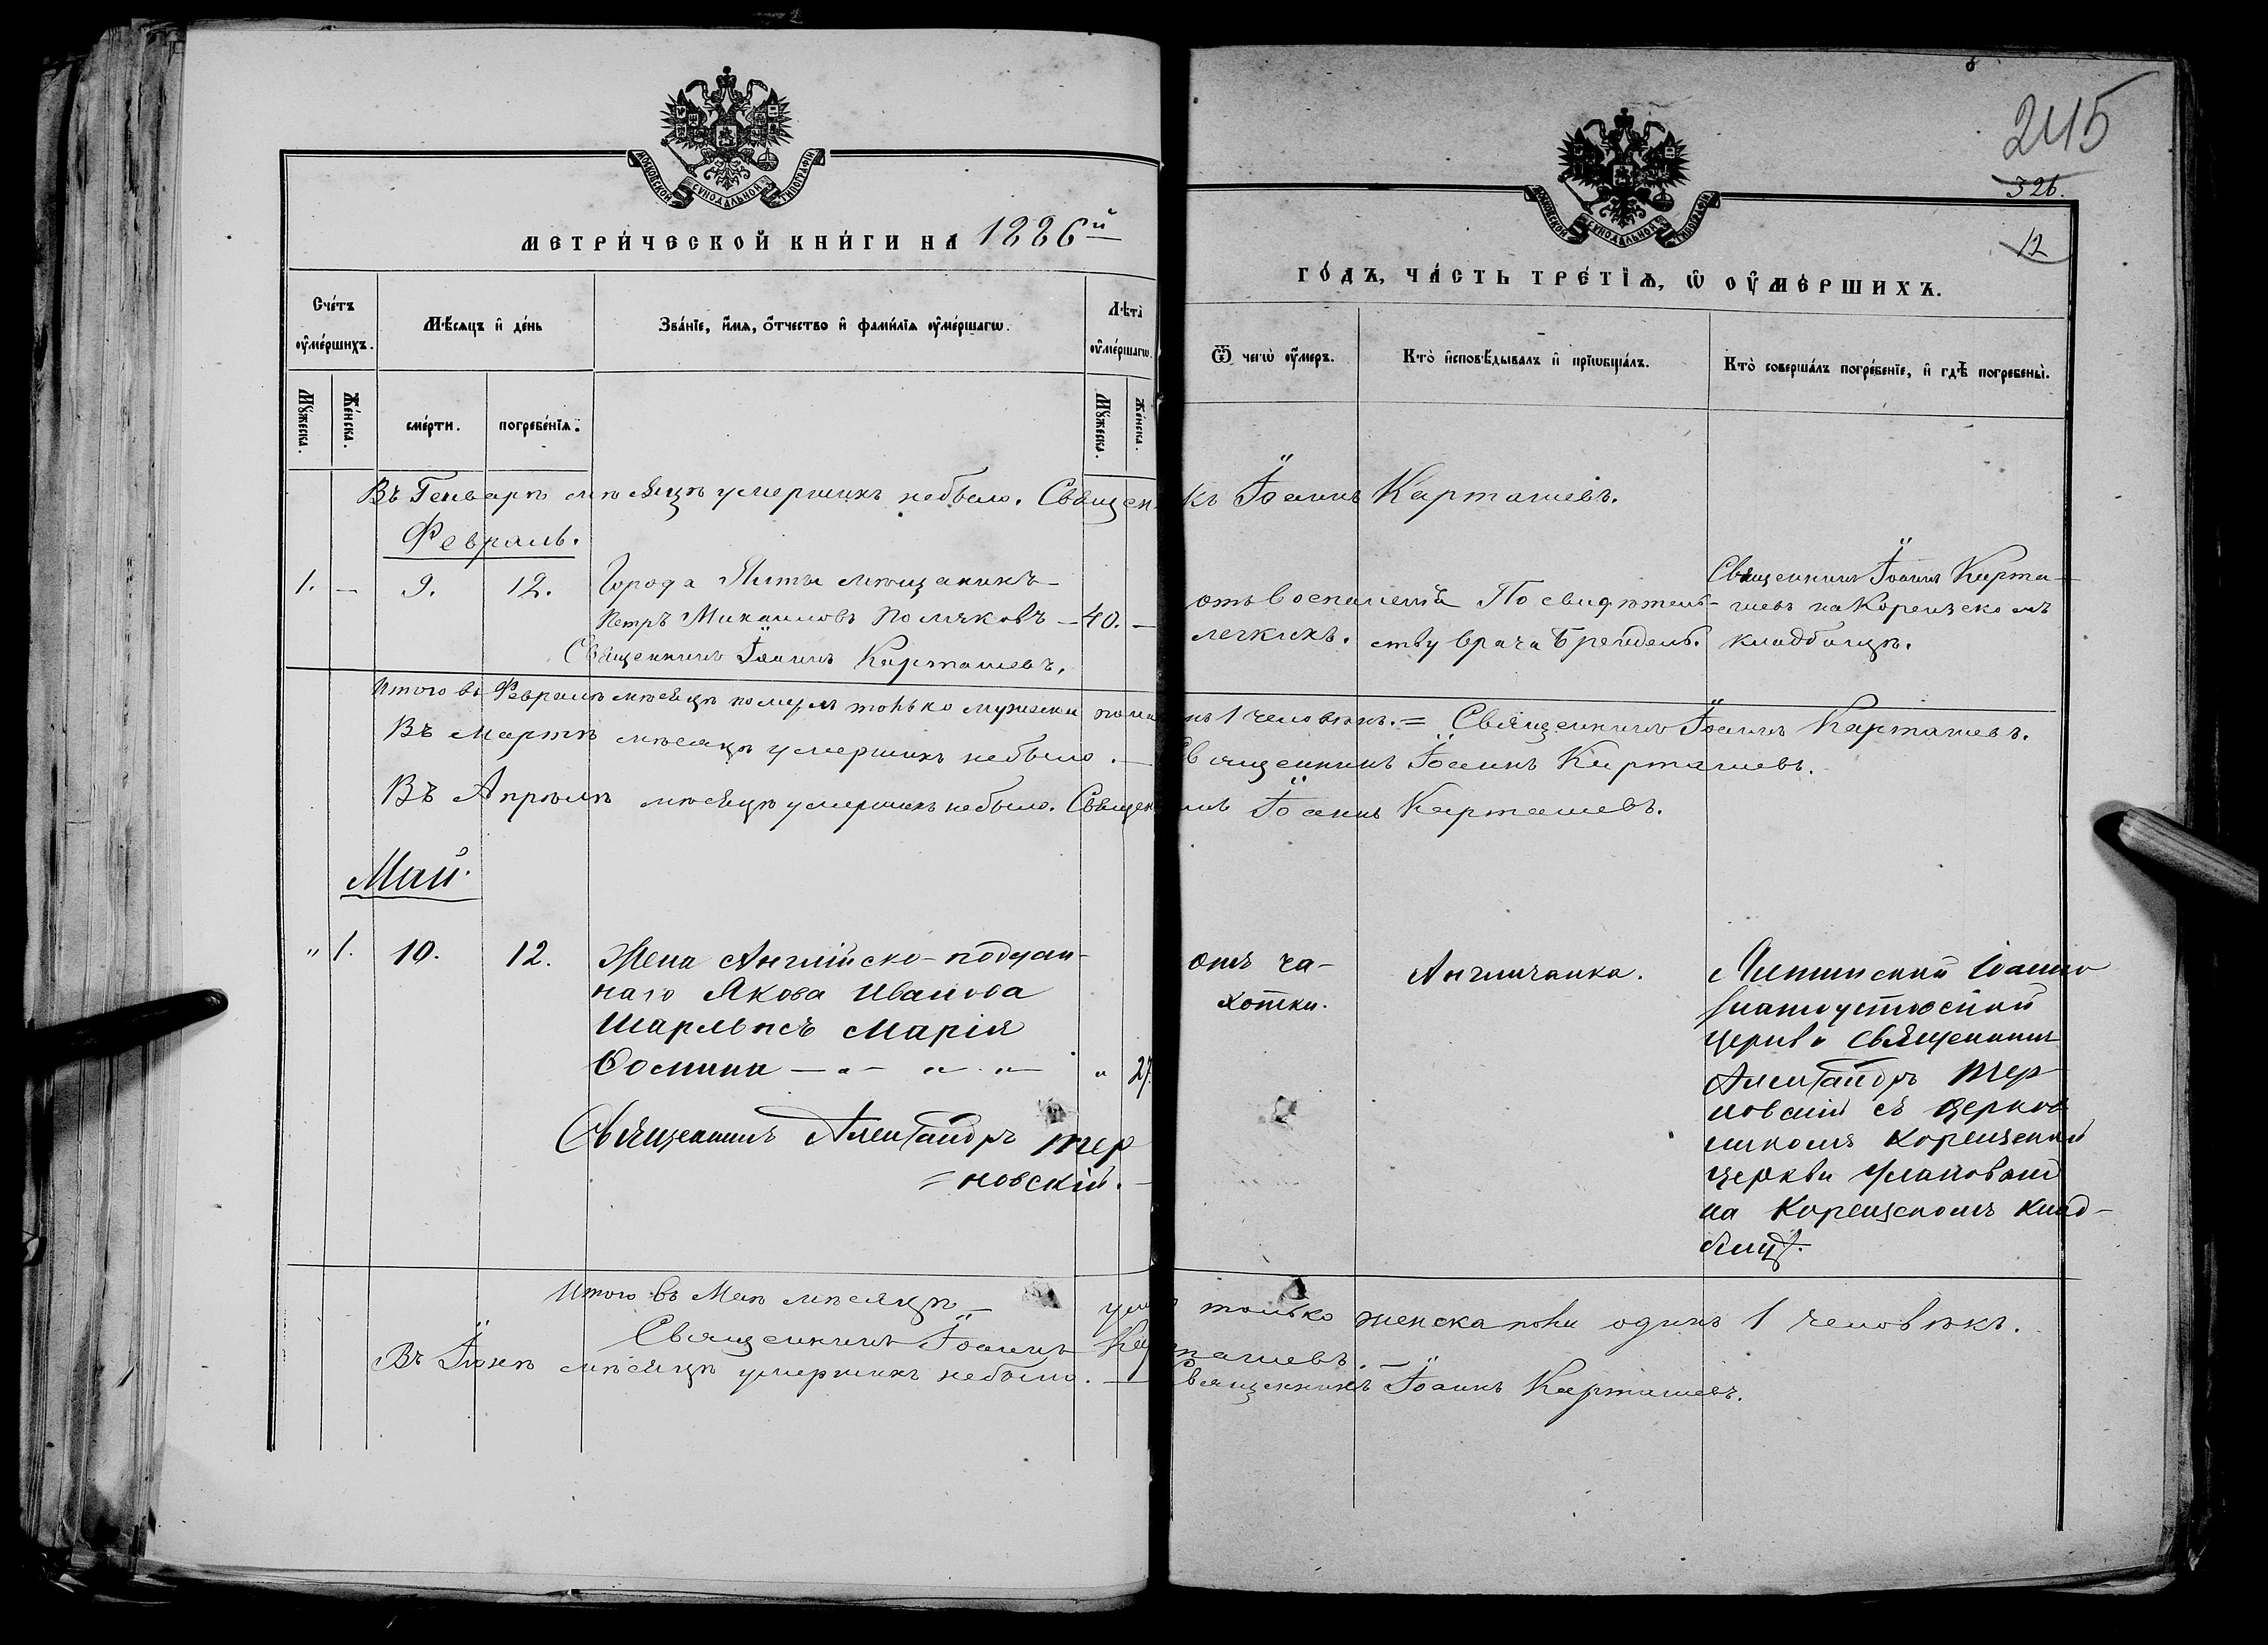 МОСКОВСКОЙ СѴНОДАЛЬНОЙ ТИПОГРАФІИ
МЕТРИ́ЧЕСКОЙ КНИ́ГИ НА 1886й
Сче́тъ ᲂу҆ме́ршихъ.
Мѣ́сяцъ и҆ де́нь
Зва́нїе, и҆́мѧ, ѻ҆́тчество и҆ фами́лїѧ ᲂу҆ме́ршагѡ.
Лѣ́та ᲂу҆ме́ршагѡ.
Мꙋ́жеска.
Же́нска.
сме́рти.
погребе́нїѧ.
Мꙋ́жеска.
Же́нска.
245
326.
12
МОСКОВСКОЙ СѴНОДАЛЬНОЙ ТИПОГРАФІИ
ГО́ДЪ, ЧА́СТЬ ТРЕ́ТЇѦ, Ѡ҆ ОУ҆МЕ́РШИХЪ.
Ѿ чегѡ̀ ᲂу҆́меръ.
Кто̀ и҆сповѣ́дывалъ и҆ прїѡбща́лъ.
Кто̀ соверша́лъ погребе́нїе, и҆ гдѣ̀ погребены̀.
Въ Генварѣ мѣсяцѣ умершихъ небыло. Священ
къ Іоаннъ Карташевъ.
Февраль.
1. — 9. 12. Города Ялты мѣщанинъ
Петръ Михаиловъ Поляковъ — 40. —
Священникъ Іоаннъ Карташевъ.
отъ воспаленія
легкихъ.
По свидѣтель-
ству врача Брейдель.
Священникъ Іоаннъ Карта-
шевъ на Кореизскомъ
кладбищѣ.
Итого въ Февралѣ мѣсяцѣ померъ только мужеска пола
нъ 1 человѣкъ. = Священникъ Іоаннъ Карташевъ.
Въ Мартѣ мѣсяцѣ умершихъ небыло. —
Священникъ Іоаннъ Карташевъ.
Въ Апрѣлѣ мѣсяцѣ умершихъ небыло. Священ
икъ Іоаннъ Карташевъ.
Май.
" 1. 10. 12. Жена Англійско-поддан-
наго Якова Иванова
Шарльсъ Марія
" 27.
Священникъ Александръ Тер
= новскій. —
отъ ча-
хотки.
Англичанка.
Ялтинской Іоанно
Златоустовской
церкви Священникъ
Александръ Тер-
новскій съ церков
никомъ Кореизской
церкви
на Кореизскомъ клад-
бищѣ.
Итого въ Маѣ мѣсяцѣ — умер только женска пола одинъ 1 человѣкъ.
Священникъ Іоаннъ Карташевъ. —
Въ Іюнѣ мѣсяцѣ умершихъ небыло. — Священникъ Іоаннъ Карташевъ.